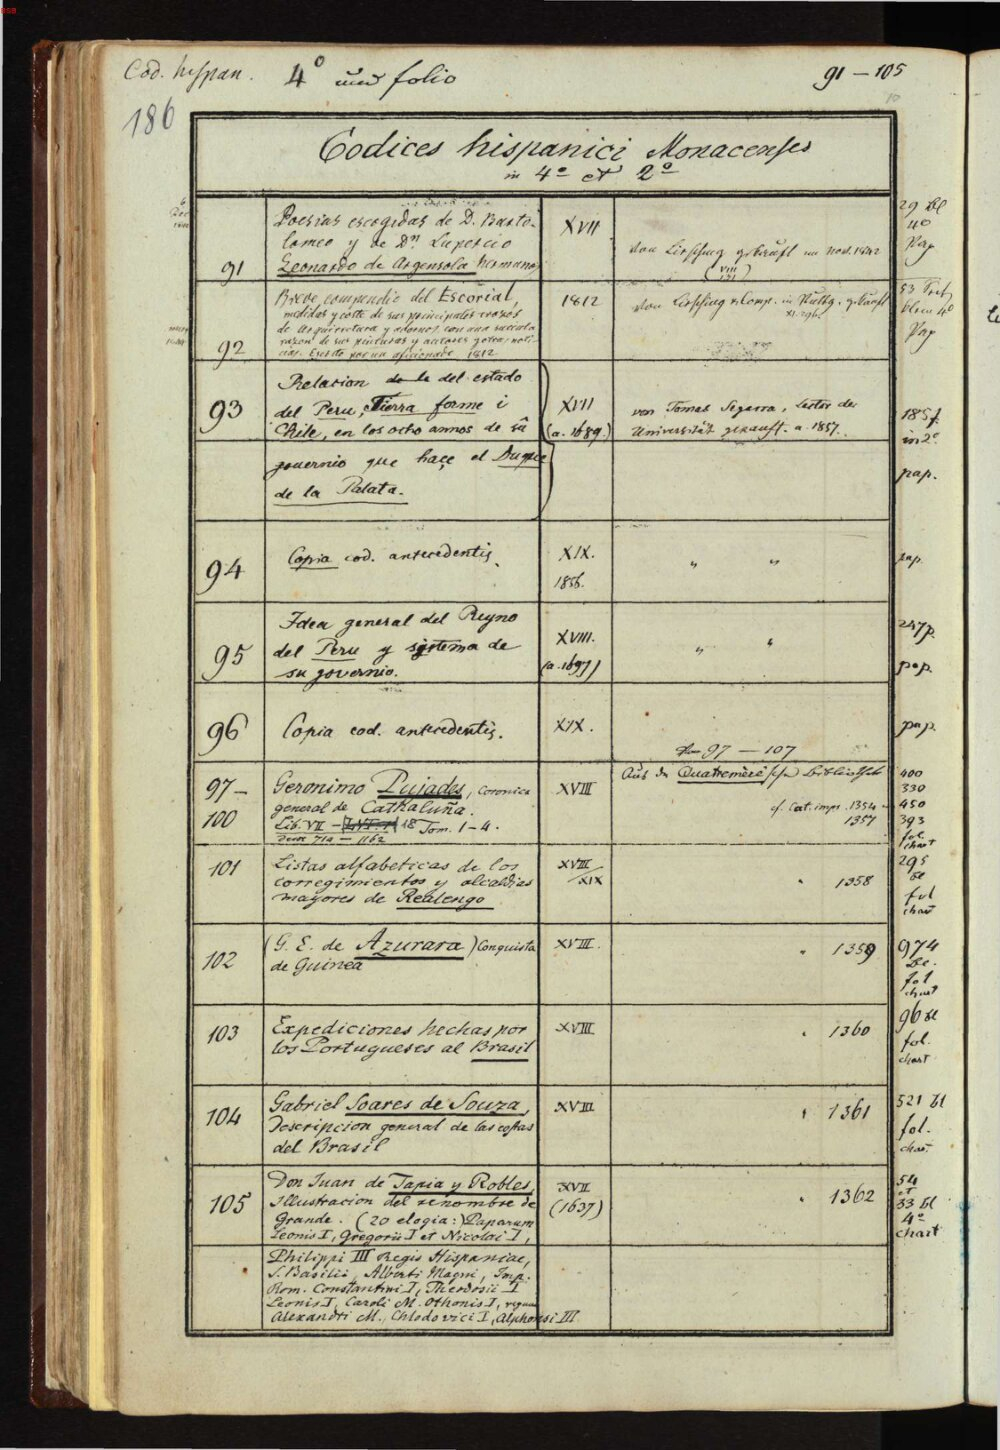 Cod. hispan. 4° und folio 91 – 105
186
Codices hispanici Monacenses
in 4° et 2°
91
Poesias escogidas de D. Barto-
lomeo y de Dn Lupercio
Leonardo de Argensola hermanos
XVII
von Liesching gekauft im Nov. 1842
29 Bl
4°
Pap
92
Breve compendio del Escorial,
medidas y coste de sus principales trozos
de Arquitectura y adornos con una succinta
razon de sus pinturas y autores y otras noti-
cias. Escrito por un aficionado 1812
1812
von Liesching & Comp. in Stuttg. gekauft
53
4°
Pap
93
Relacion de le del estado
del Peru, Tierra forme i
Chile, en los ocho annos de sû
governio que haçe el Duque
de la Palata.
XVII
(a. 1689.)
von Tomas Segarra, Lector der
Universität gekauft. a. 1857.
185 f.
in 2°
pap.
94
Copia cod. antecedentis.
XIX.
1856.
" "
pap.
95
Idea general del Reyno
del Peru y sistema de
su governio.
XVIII.
(a. 1697)
" "
247 p.
pap.
96
Copia cod. antecedentis.
XIX.
pap.
97 – 107
97 –
100
Geronimo Pujades, Coronica
general de Cathaluña.
Lib. VII – 18 Tom. 1–4.
714 – 1162
XVIII
Aus der Quatremère'schen Bibliothek
cf. Cat. impr. 1354 –
1357
400
330
450
393
fol.
chart
101
Listas alfabeticas de los
corregimientos y alcaldias
mayores de Realengo
XVIII
/XIX
" 1358
295
Bl
fol
chart
102
(G. E. de Azurara) Conquista
de Guinea
XVIII.
" 1359
974
Bl.
fol
chart
103
Expediciones hechas por
los Portugueses al Brasil
XVIII
" 1360
96 Bl
fol.
chart
104
Gabriel Soares de Souza,
Descripcion general de las costas
del Brasil
XVIII
" 1361
521 Bl
fol.
chart
105
Don Juan de Tapia y Robles,
Illustracion del renombre de
Grande. (20 elogia: Paparum
Leonis I, Gregorii I et Nicolai I,
Philippi III Regis Hispaniae,
S. Basilii, Alberti Magni, Imp.
Rom. Constantini I, Theodosii I
Leonis I, Caroli M. Othonis I, regum
Alexandri M., Chlodovici I, Alphonsi III
XVII
(1637)
" 1362
54
et
33 Bl
4°
chart